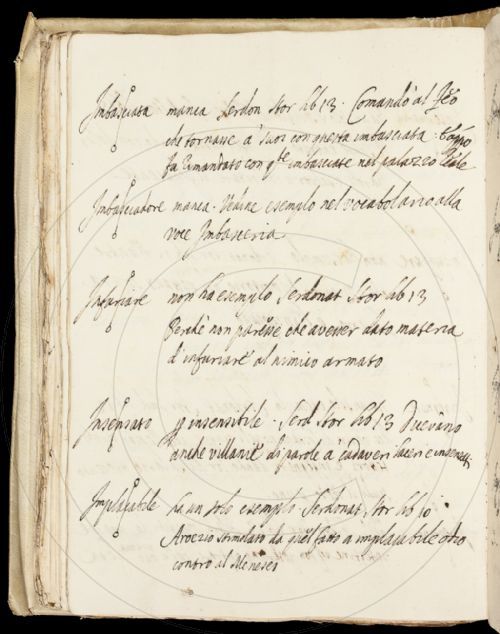 Imbasciata manca Serdon Stor lib 13. Comandò al
che tornasse à suoi con questa imbasciata.
fu rimandato con q.te imbasciate nel palazzo Reale
Imbasciadore manca. Vedine esempio nel vocabolario alla
voce Imbasceria
Infuriare non ha esempio Serdonat Stor lib 13
Perche non paresse che avesser dato materia
d'infuriare al nimico armato
Insensato p insensibile. Serd Stor lib 13 Dicevano
anche villanie di parole à cadaveri laceri e insensati
Implacabile ha un solo esempio Serdonat Stor lib 10
stimolato da quel fatto a implacabile odio
contro al Meneses